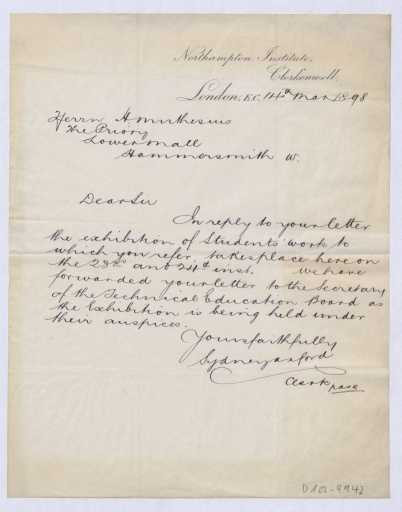 Northampton Institute,
Clerkenwell.
London, E.C. 14th Mar 1898
Herrn H Muthesius
The Priory
Lower Mall
Hammersmith W.
Dear Sir
In reply to your letter
the exhibition of Students' work to
which you refer, takes place here on
the 23rd and 24th inst. we have
forwarded your letter to the Secretary
of the Technical Education Board as
the Exhibition is being held under
their auspices.
Yours faithfully
Sydney